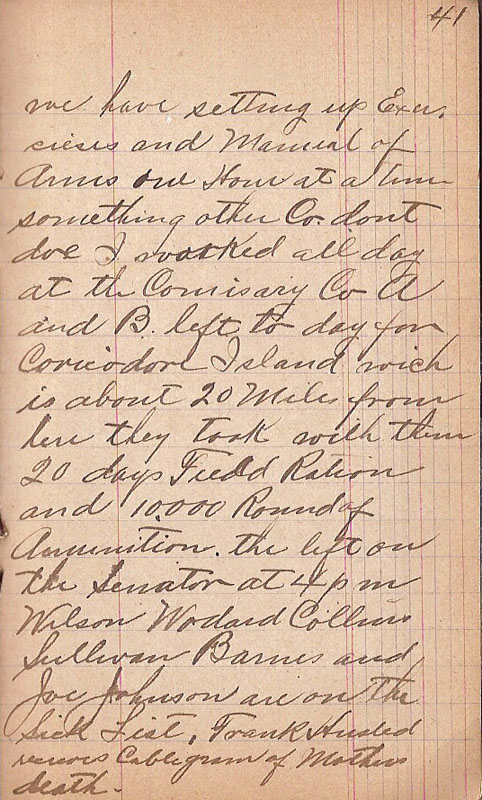 41
we have setting up Exer,
cieses and Manual of
Arms one Hour at a time
something other Co. dont
doe I worked all day
at the Comisary Co A
and B. left to day for
Coricodore Island wich
is about 20 Miles from
here they took with them
20 days Field Ration
and 10.000 Round of
Ammenition. the left on
the Senator at 4 p m
Wilson Wodard Collins
Sullivan Barnes and
Joe Johnson are on the
Sick List, Frank Husted
recieves Cablegram of Mothers
death.